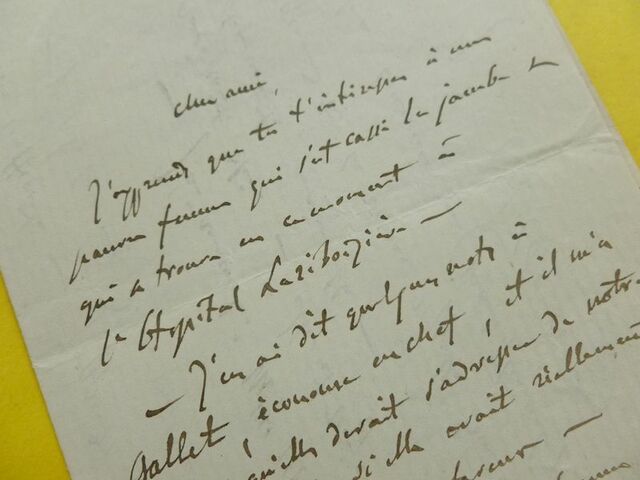 cher ami,
J'apprends que tu t'intéresses à une
pauvre femme qui s'est cassé la jambe &
qui se trouve en ce moment à
l'Hopital Lariboizière —
— J'en ai dit quelques mots à
Gallet, économe en chef, et il m'a
qu'elle devait s'adresser de notre
si elle avait réellement